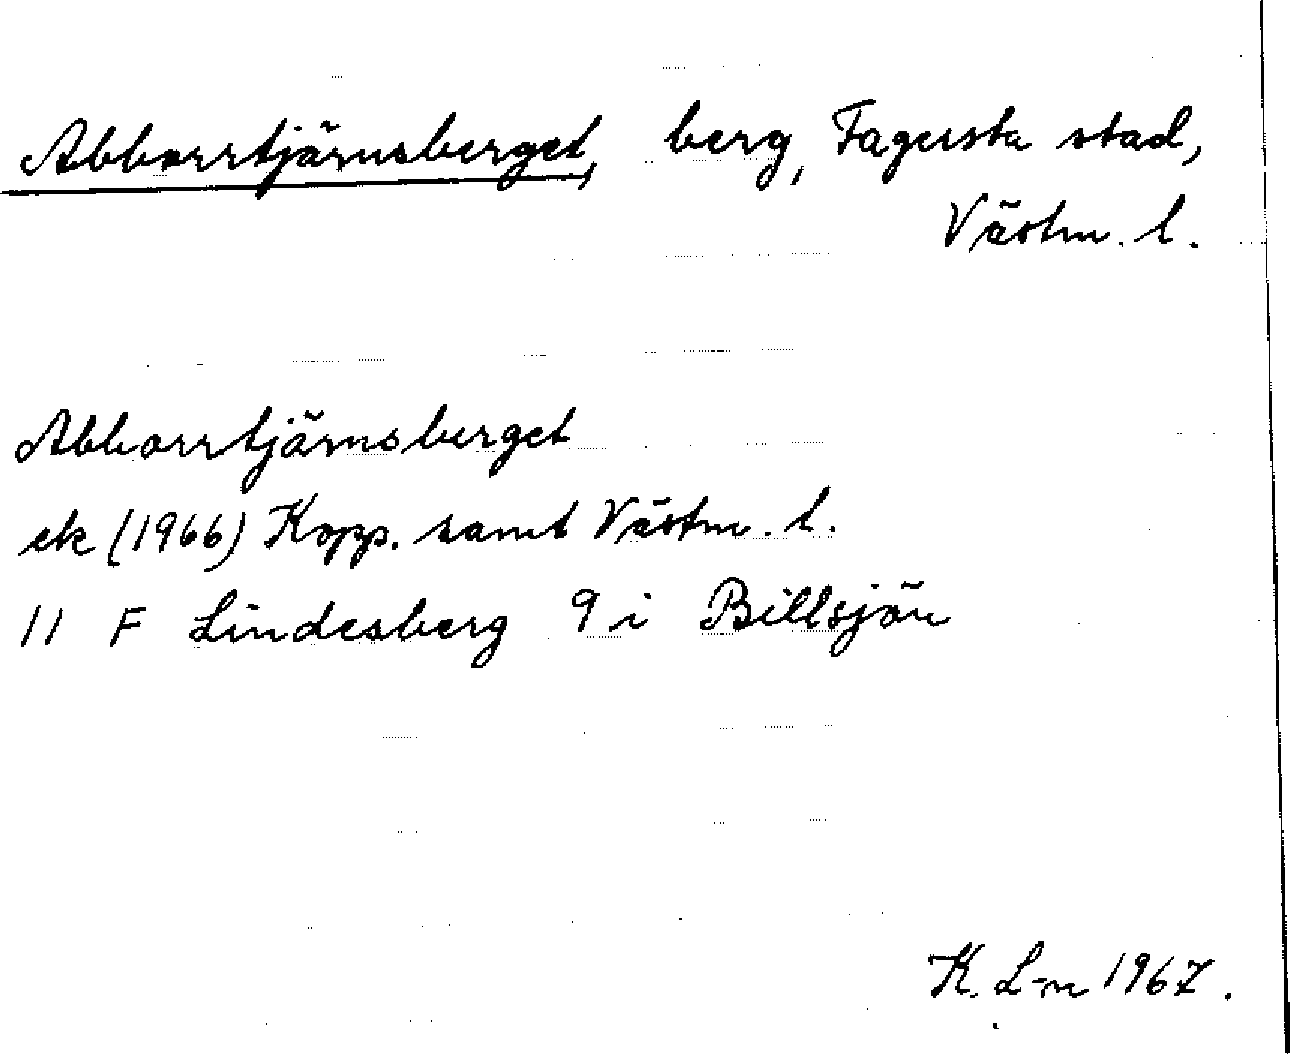 Abborrtjärnsberget, berg, Fagersta stad,
Västm. l.
Abborrtjärnsberget
ek (1966) Kopp. samt Västm. l.
11 F Lindesberg 9 i Billsjön
K. L-m 1967.